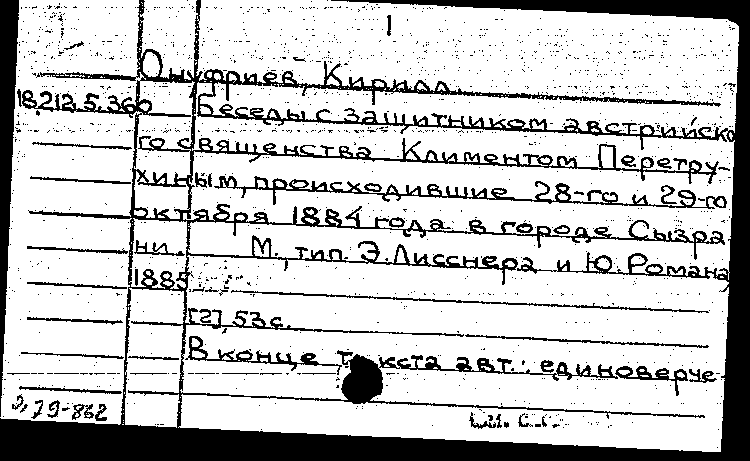 1
Онуфриев, Кирилл.
18.212.5.360 Беседы с защитником австрийско
го священства Климентом Перетру-
хиным, происходившие 28-го и 29-го
октября 1884 года в городе Сызра
ни. М., тип. Э. Лисснера и Ю. Романа,
1885
[2], 53 с.
В конце текста авт.: единоверче-
2,79-862